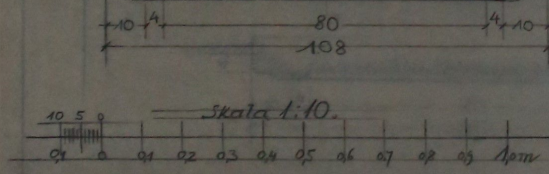 10 4 80 4 10
108
Skala 1:10.
10 5 0
0,1 0 0,1 0,2 0,3 0,4 0,5 0,6 0,7 0,8 0,9 1,0 m